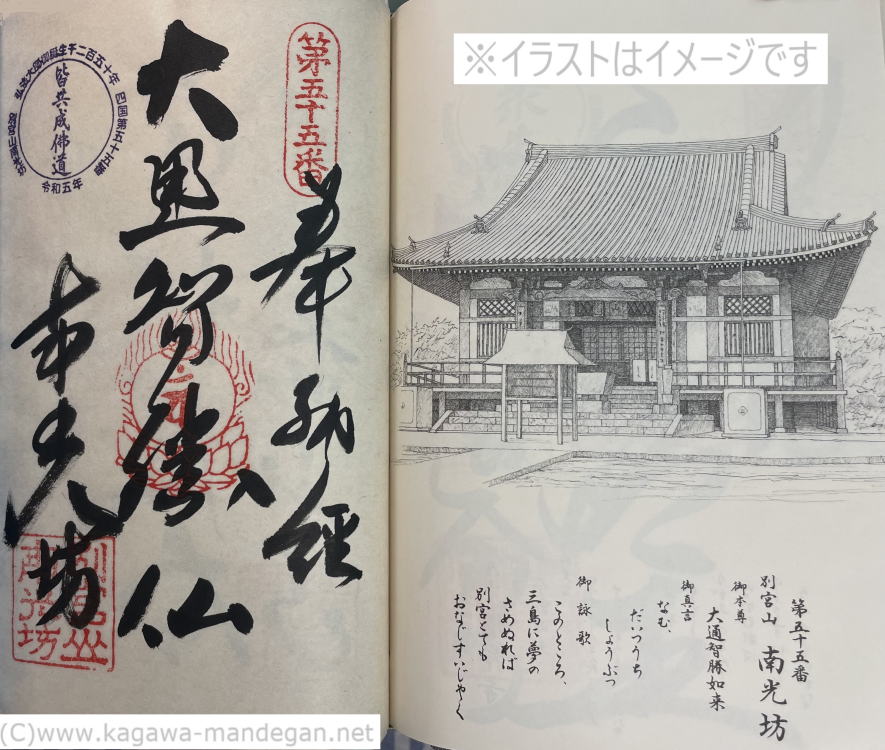 ※イラストはイメージです
第五十五番
奉納経
大通智勝仏
南光坊
弘法大師御誕生千二百五十年
四国第五十五番
別宮山南光坊
令和五年
皆共成佛道
別宮山
南光坊
第五十五番
別宮山 南光坊
御本尊
大通智勝如来
御真言
なむ、
だいつうち
しょうぶつ
御詠歌
このところ、
三島に夢の
さめぬれば
別宮とても
おなじすいじゃく
(C)www.kagawa-mandegan.net